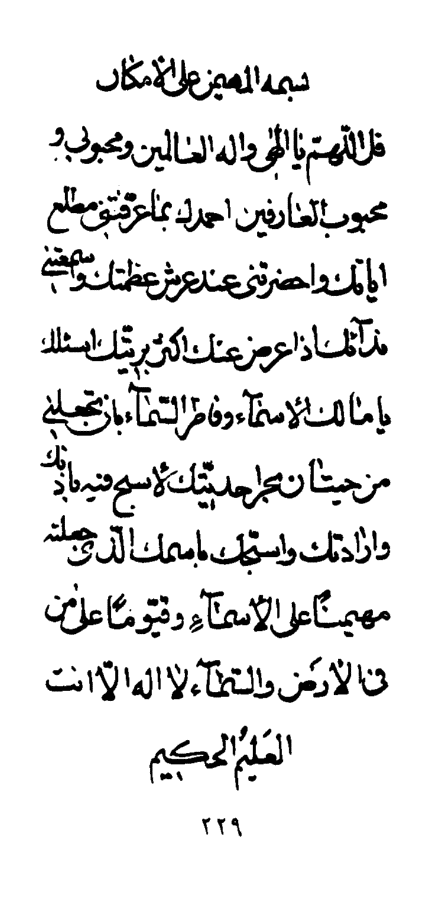 بسمه المهیمن علی الامکان
قل اللّهمّ یا الهی و اله العالمین و محبوبی و
محبوب العارفین احمدک بما عرّفتنی مطلع
ایاتک و احضرتنی عند عرش عظمتک و سمعتنی
ندآئک اذ اعرض عنک اکثر بریّتک اسئلک
یا مالک الاسمآء و فاطر السّمآء بان تجعلنی
من حیتان بحر احدیّتک لاسبح فیه باذنک
و ارادتک و اسبّحک باسمک الّذی جعلته
مهیمنًا علی الاسمآءِ و قیّومًا علی من
فی الارَض و السّمآء لا اله الّا انت
العَلیمُ الحکیم
٢٢٩